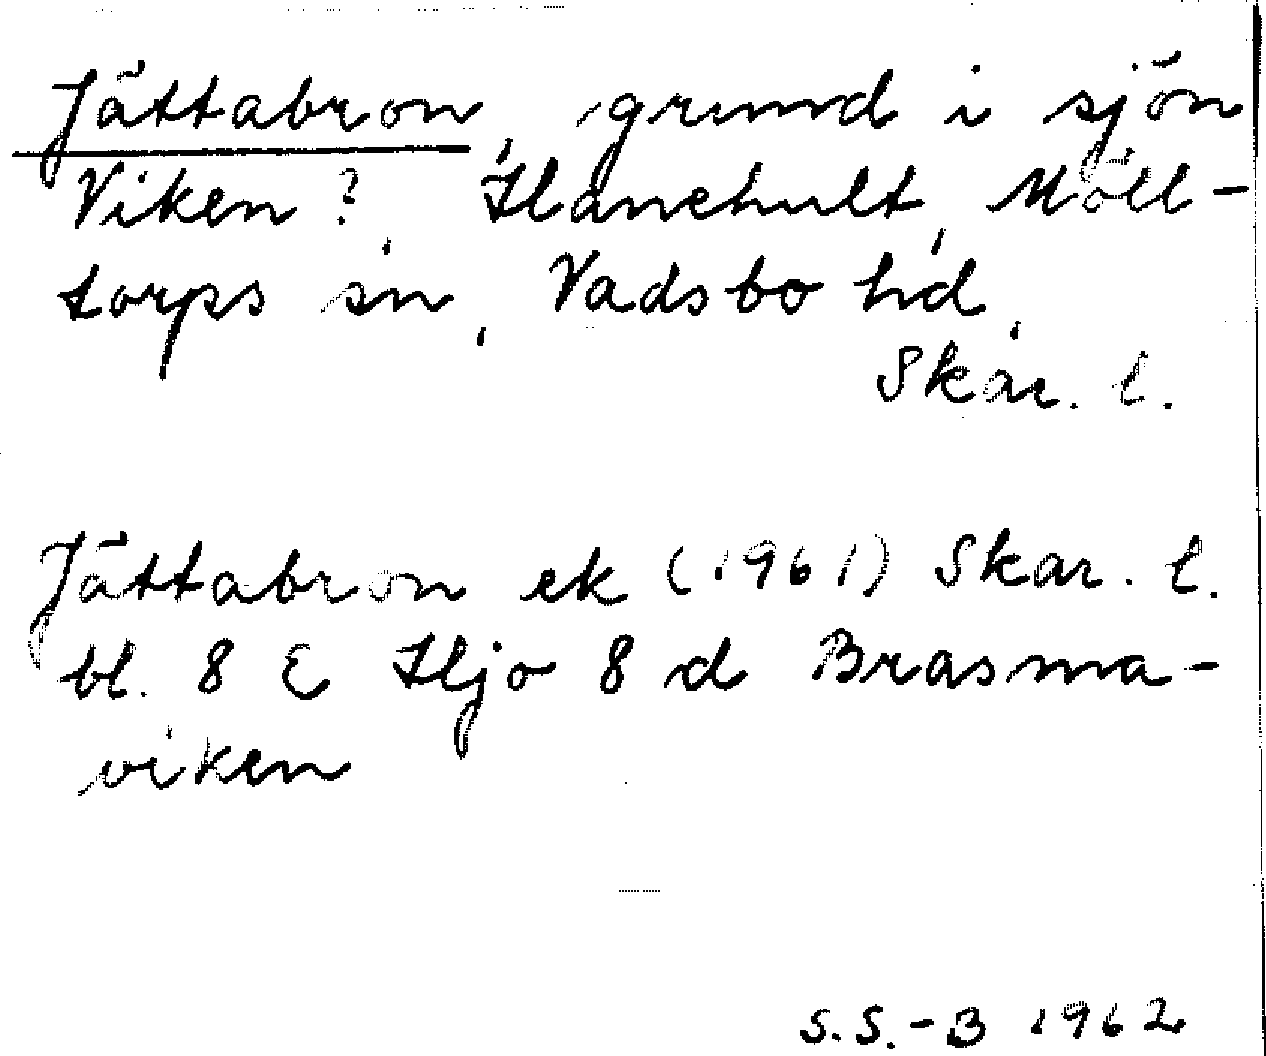 Jättabron, grund i sjön
Viken?, Hanehult, Möll-
torps sn, Vadsbo hd,
Skar. l.
Jättabron ek (1961) Skar. l.
bl. 8 E Hjo 8 d Brasma-
viken
S.S.-B 1962